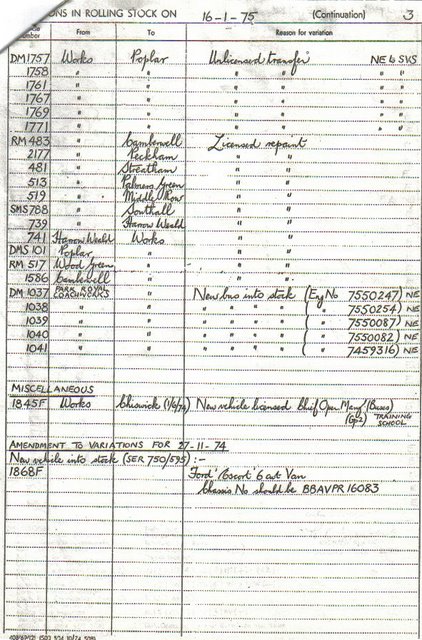 ONS IN ROLLING STOCK ON 16-1-75 (Continuation) 3
umber From To Reason for variation
DM1757 Works Poplar Unlicensed transfer NE to SKS
1758 " " " " " "
1761 " " " " " "
1767 " " " " " "
1769 " " " " " "
1771 " " " " " "
RM 483 " Camberwell Licensed repaint
2177 " Peckham " "
481 " Streatham " "
513 " Palmers Green " "
519 " Middle Row " "
SMS 788 " Southall " "
739 " Harrow Weald " "
741 Harrow Weald Works " "
DMS 101 Poplar " " "
RM 517 Wood Green " " "
1586 Camberwell " " "
DM 1037 PARK ROYAL COACHWORKS " New bus into stock (Eng No 7550247) NE
1038 " " " " " " ( " 7550254) NE
1039 " " " " " " ( " 7550087) NE
1040 " " " " " " ( " 7550082) NE
1041 " " " " " " ( " 7459316) NE
MISCELLANEOUS
1845F Works Chiswick (1/6/74) New vehicle licensed Chief Oper. Man/(Buses)
(Gp2) TRAINING SCHOOL
AMENDMENT TO VARIATIONS FOR 27-11-74
New vehicle into stock (SER 750/595) :-
1868F Ford 'Escort' 6 cwt Van
Chassis No should be BBAVPR 16083